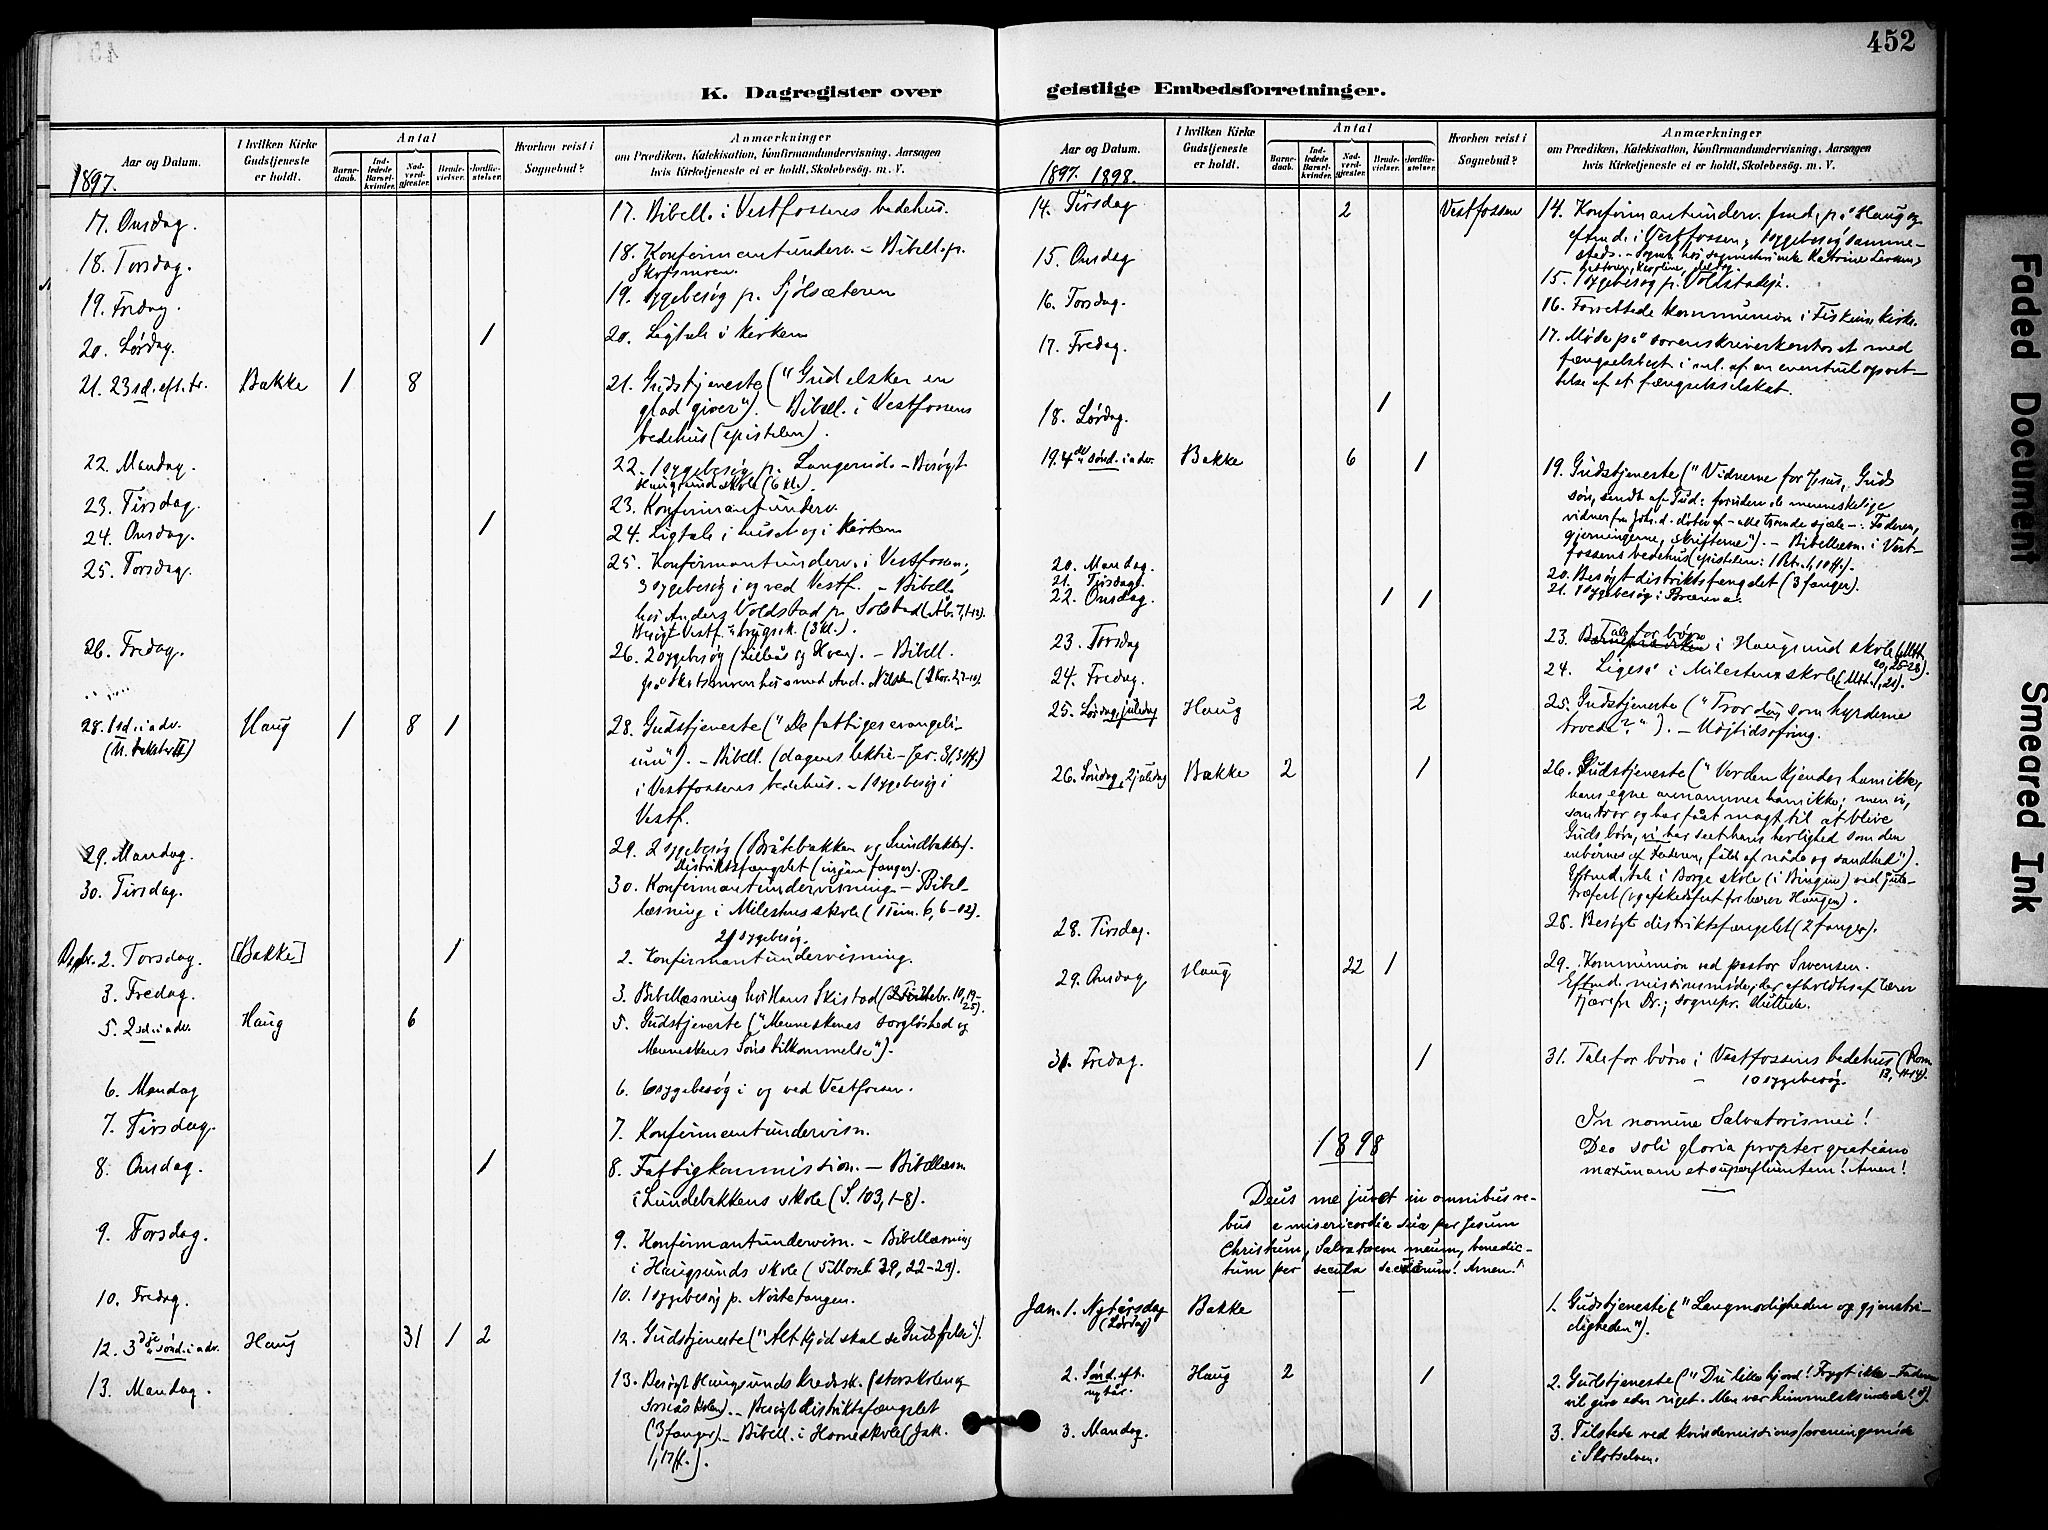 452
K. Dagregister over geistlige Embedsforretninger.
Aar og Datum.
I hvilken Kirke Gudstjeneste er holdt.
Antal
Barnedaab.
Indledede Barselkvinder.
Nadverdgjester.
Brudevielser.
Jordfæstelser.
Hvorhen reist i Sognebud?
Anmærkninger
om Prædiken, Katekisation, Konfirmandundervisning, Aarsagen
hvis Kirketjeneste ei er holdt, Skolebesøg. m. V.
1897.
17. Onsdag. 17. Bibell. i Vestfossens bedehus.
18. Torsdag. 18. Konfirmantunderv. – Bibell. p.
Skotsmoen.
19. Fredag. 19. sygebesøg p. Sjølsæteren
20. Lørdag. 1 20. Ligtale i kirken
21. 23 sd. eft. tr. Bakke 1 8 21. Gudstjeneste ("Gud elsker en
glad giver"). – Bibell. i Vestfossens
bedehus (epistelen).
22. Mandag. 22. 1 sygebesøg p. Langerud. – Besøgt
Haugsund skole (6 kl.).
23. Tirsdag. 23. Konfirmantunderv.
24. Onsdag. 1 24. Ligtale i huset og i kirken
25. Torsdag. 25. Konfirmantunderv. i Vestfossen;
3 sygebesøg i og ved Vestf. – Bibell.
hos Anders Voldstad p. Solstad
26. Fredag. 26. 2 sygebesøg – Bibell.
på Skotsmoen hos
28. 1 sd. i adv. Haug 1 8 1 28. Gudstjeneste ("De fattiges evangeli-
um"). – Bibell. (dagens lektie – Jer. 31, 31 ff.)
i Vestfossens bedehus. – 1 sygebesøg i
Vestf.
29. Mandag. 29. 2 sygebesøg (Bråtebakken og Lundbakke).
Distriktsfængslet (ingen fanger).
30. Tirsdag. 30. Konfirmantundervisning – Bibel-
læsning i Milesteins skole (1 Tim. 6, 6–12).
2 sygebesøg.
2. Torsdag. [Bakke] 1 2. Konfirmantundervisning.
3. Fredag. 3. Bibellæsning hos Hans Skistad
5. 2 sd. i adv. Haug 6 5. Gudstjeneste ("Menneskenes sorgløshed og
Menneskens Søns tilkommelse").
6. Mandag 6. 6 sygebesøg i og ved Vestfossen.
7. Tirsdag. 7. Konfirmantundervisn.
8. Onsdag. 1 8. Fattigkommission. – Bibellæsn.
i Lundebakkens skole (S. 103, 1–8).
9. Torsdag. 9. Konfirmantundervisn. – Bibellæsning
i Haugsunds skole
10. Fredag. 10. 1 sygebesøg p. Nøstetangen.
12. 3dje sønd. i adv. Haug 31 1 2 12. Gudstjeneste ("Alt kjød skal se Guds frelse").
13. Mandag. 13. Besøgt Haugsunds kredssk. (storskolen og
småskolen). – Besøgt distriktsfængslet
(3 fanger). – Bibell. i Horneskole (Jak.
1, 17 ff.).
Aar og Datum.
I hvilken Kirke Gudstjeneste er holdt.
Antal
Barnedaab.
Indledede Barselkvinder.
Nadverdgjester.
Brudevielser.
Jordfæstelser.
Hvorhen reist i Sognebud?
Anmærkninger
om Prædiken, Katekisation, Konfirmandundervisning, Aarsagen
hvis Kirketjeneste ei er holdt, Skolebesøg. m. V.
1897. 1898.
14. Tirsdag 2 Vestfossen 14. Konfirmantunderv. fmd. på Haug og
eftmd. i Vestfossen; sygebesøg samme-
steds.
15. Onsdag 15. 1 sygebesøg p. Voldstadeje.
16. Torsdag. 16. Forrettede kommunion i Fiskum kirke.
17. Fredag. 17. Møde på sorenskriverkontoret med
i anl. af en eventuel opret-
telse af et fængselsselskab.
18. Lørdag. 1
19. 4de sønd. i adv. Bakke 6 1 19. Gudstjeneste ("Vidnerne for Jesus, Guds
søn, sendt af Gud: foruden de menneskelige
vidner fra Joh. d. døber af – alle troende sjæle –: Faderen,
gjerningerne, skrifterne"). – Bibellæsn. i Vest-
fossens bedehus
20. Mandag. 20. Besøgt distriktsfængslet (3 fanger).
21. Tirsdag.
22. Onsdag. 1 1
23. Torsdag 23. Tale for børn i Haugsund skole
24. Fredag. 24. Ligeså i Milesteins skole
25. Lørdag, juledag Haug 2 25. Gudstjeneste ("Tror du, som hyrderne
troede?"). – Højtidsofring.
26. Søndag, 2 juledag Bakke 2 1 26. Gudstjeneste ("Verden kjender ham ikke,
hans egne annammer ham ikke; men vi,
som tror og har fået magt til at blive
Guds børn, vi har seet hans herlighed som den
enbårnes af Faderen, fuld af nåde og sandhed").
Eftmd. tale i Borge skole (i Bingen) ved jule-
træfest (og afskedsfest for lærer Haugen).
28. Tirsdag. 28. Besøgt distriktsfængslet (2 fanger).
29. Onsdag Haug 22 1 29. Kommunion ved pastor Svensen.
Eftmd. missionsmøde, der afholdtes af lærer
sognepr. sluttede.
31. Fredag. 1 31. Tale for børn i Vestfossens bedehus (Rom.
13, 11–14).
– 10 sygebesøg.
In nomine Salvatoris mei!
Deo soli gloria propter gratiam
maximam et superfluentem! Amen!
1898
Deus me juvet in omnibus re-
bus e misericordia sua per Jesum
Christum, Salvatorem meum, benedic-
tum per secula seculorum! Amen!
Jan. 1. Nytårsdag Bakke 1. Gudstjeneste ("Langmodigheden og gjenstri-
(Lørdag)
digheden").
2. Sønd. eft. Haug 2 1 2. Gudstjeneste ("Du lille hjord! Frygt ikke – Faderen
nytår.
vil give eder riget. Men vær himmelsksindede!").
3. Mandag. 3. Tilstede ved kvindemissionsforeningsmøde
i Skotselven.
Faded Document
Smeared Ink